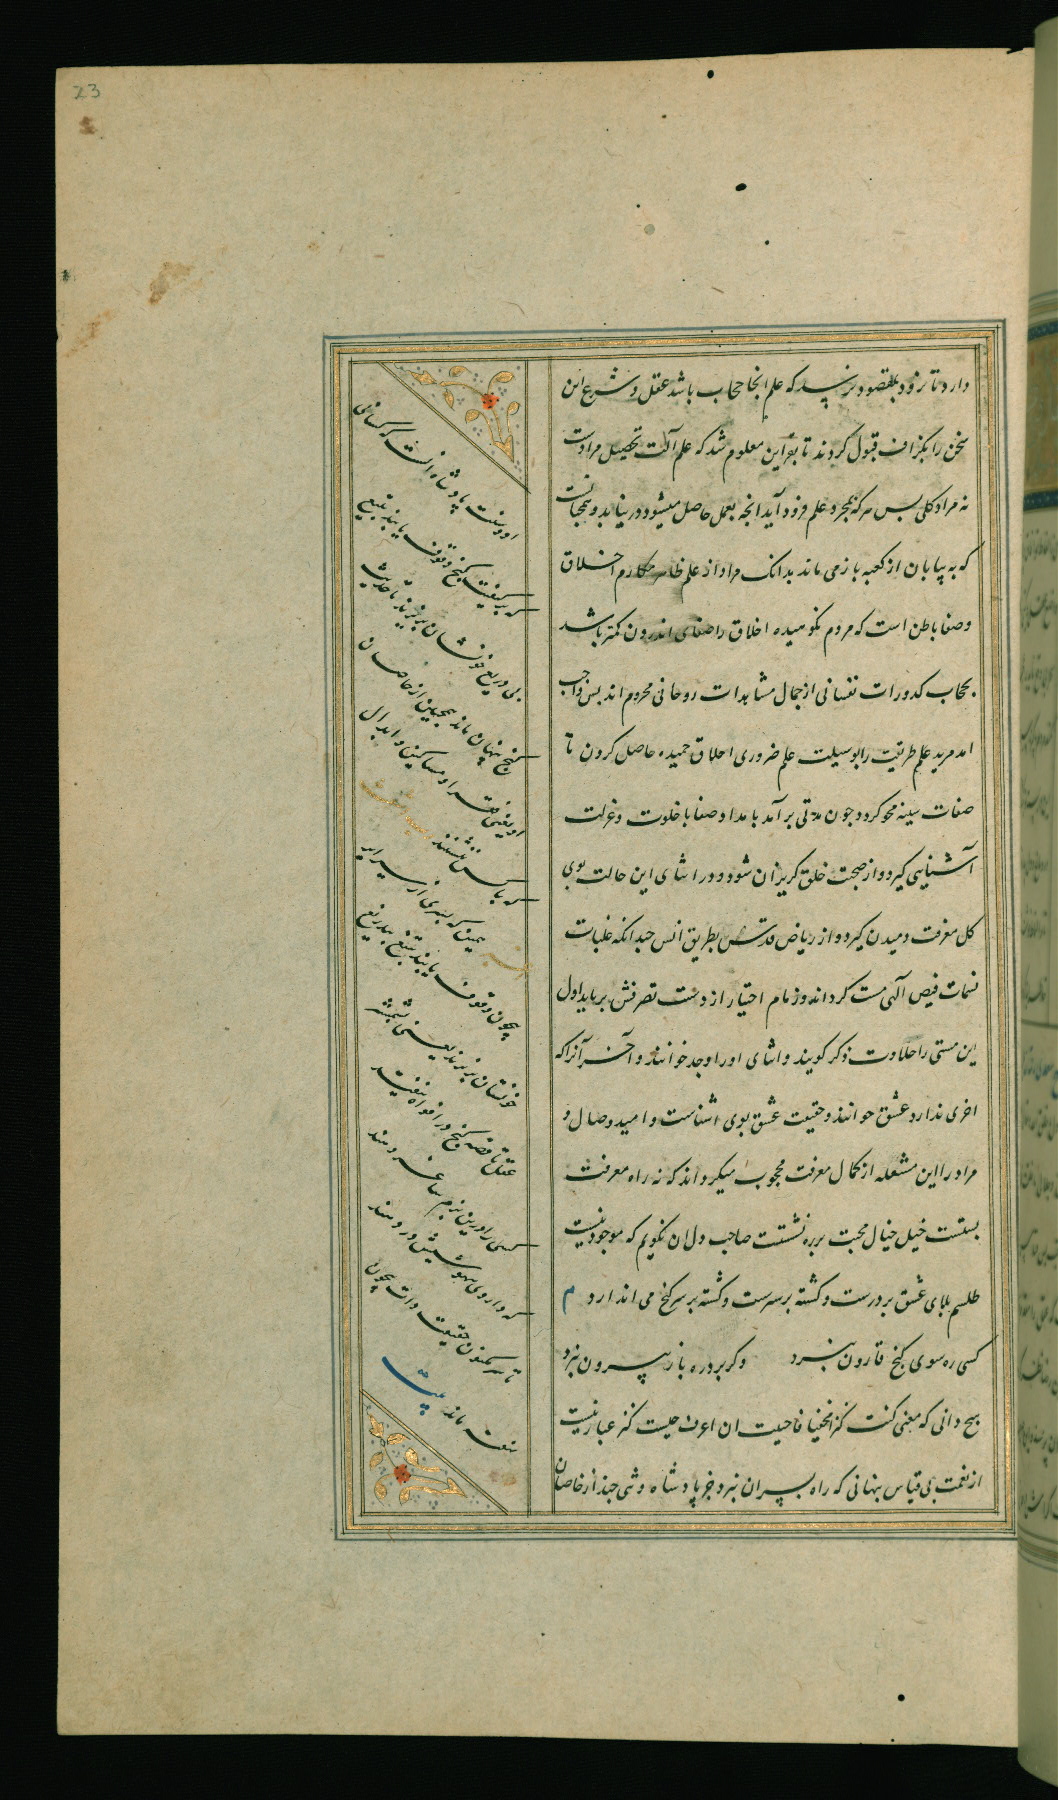 23
دارد تا زود بمقصود نرسد که علم انجا حجاب باشد عقل و شرع این
سخن را بگزاف قبول کردند تا بقراین معلوم شد که علم آلت تحصیل مرادست
نه مراد کلی بس هرکه بمجرد علم فرود آید انچه بعمل حاصل میشود در نیابد و همچنانست
که به بیابان از کعبه باز می ماند بدانک مراد از علم ظاهر مکارم اخلاق
و صفا باطن است که مردم نکوهیده اخلاق را صفای اندرون کمتر باشد
بحجاب کدورات نفسانی از جمال مشاهدات روحانی محروم اند بس واجب
امد مرید علم طریقت را بوسیلت علم ضروری اخلاق حمیده حاصل کردن تا
صفات سینه محو کردد چون مدتی برآمد بامداد صفا با خلوت و عزلت
آشنایی کیرد و از صحبت خلق کریزان شود و در اثنای این حالت بوی
کل معرفت دمیدن کیرد و از ریاض قدس بطریق انس چندانکه غلبات
نسمات فیض آلهی مست کرداند و زمام اختیار از دست تصرفش برباید اول
این مستی را حلاوت ذکر کویند و اثنای او را وجد خوانند و آخر آنرا که
اخری ندارد عشق خوانند و حقیقت عشق بوی اشناست و امید وصال و
مراد را این مشغله از کمال معرفت محجوب میکرداند که نه راه معرفت
بستست خیل خیال محبت بر ره نشستست صاحب دلان نکویم که موجود نیست
طلسم بلای عشق بر درست و کشته بر سرست و کشته بر سر کنج می اندازد م
کسی ره سوی کنج قارون نبرد وکر برد ره باز بیرون نبرد
هیچ دانی که معنی کنت کنزا مخفیا فاحببت ان اعرف چیست کنز عبارتیست
از نعمت بی قیاس پنهانی که راه بسر ان نبرد جز پادشاه و تنی چند از خاصان
او و سنت پادشاه انست که کسانی
که بر کیفیت کنج وقوف یابند بتیغ
بی دریغ خونشان بریزند تا حدیث
کنج پنهان ماند همچنین از خاصان
که با کس ننشینند
چون وقوف یابند بتیغ بیدریغ
خونشان بریزند یعنی بشمشیر
عشق تا قصه کنج در افواه نیفتد
کسی را درین بزم ساغر دهند
که داروی بیهوشیش در دهند
تا سر مکنون حقیقت ذات بیچون
نهفته ماند بیت